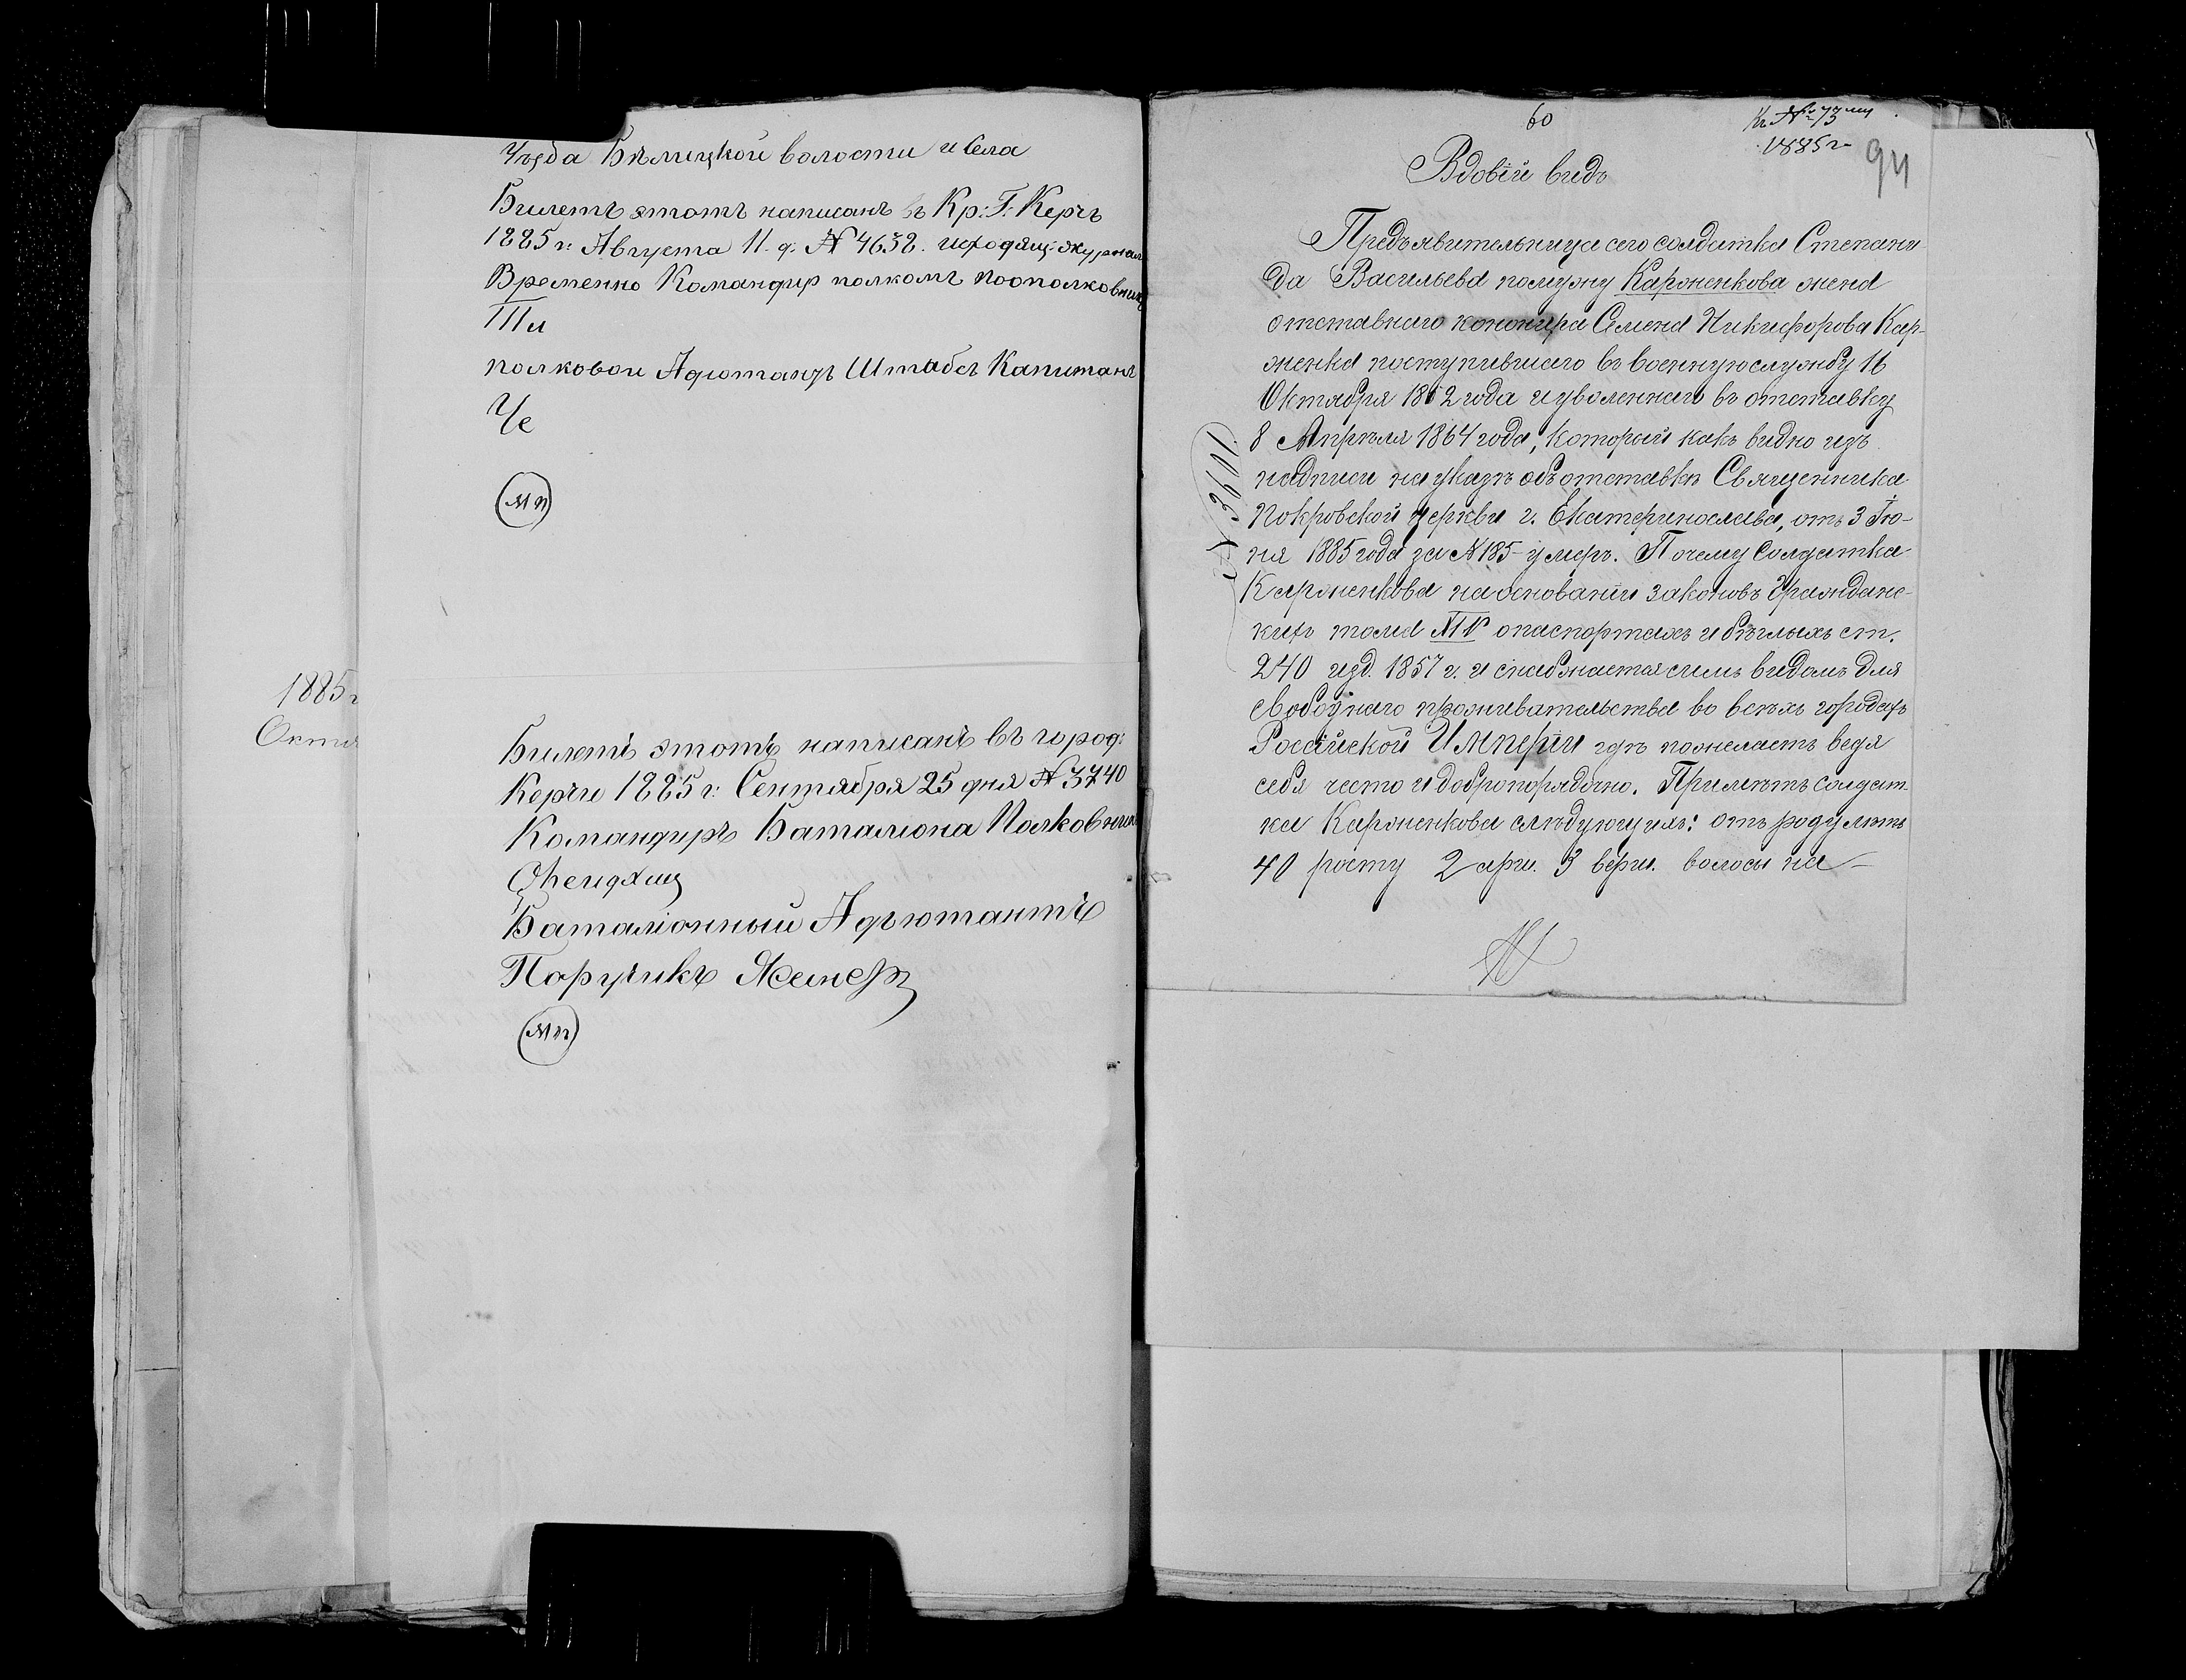 Уѣзда Бѣлицкой волости и села
Билетъ этотъ написанъ въ Кр: Г: Керчъ
1885 г: Августа 11. д: № 4638. исходящ: журнал
Временно Командир полкомъ подполковникъ
полковои Адютандъ Штабсъ Капитанъ
Че
МП
1885 г
Октя
Билетъ этотъ написанъ въ город:
Керчи 1885 г: Сентября 25 дня № 3740
Командиръ Баталиона Полковник
Баталіонный Адъютантъ
Поручикъ
МП
60
Кн. № 73
1885 г.
94
Вдовій видъ
Предъявительница сего солдатка Степани
да Васильева помужу Карженкова жена
отставнаго канонира Семена Никифорова Кар-
женка поступившаго въ военную службу 16
Октября 1862 года и уволеннаго въ отставку
8 Апрѣля 1864 года, который какъ видно изъ
надписи на указѣ объ отставкѣ Священника
Покровской церкви г. Екатеринослава, отъ 3 Iю-
ня 1885 года за № 185 умеръ. Почему солдатка
Карженкова на основаніи законовъ Гражданс-
кихъ тома XIV о паспортахъ и бѣглыхъ ст.
240 изд. 1857 г. и снабжается симъ видомъ для
свободнаго проживательства во всѣхъ городахъ
Россійской Имперіи гдѣ пожелаетъ ведя
себя чесно и добропорядочно. Примѣтъ солдат-
ка Карженкова слѣдующихъ: отъ роду лѣтъ
40 росту 2 арш. 3 верш. волосы на